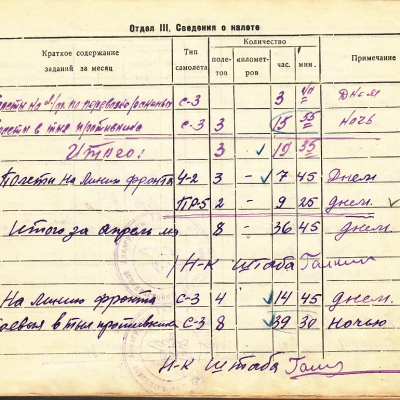 Отдел III. Сведения о налете
Краткое содержание заданий за месяц
Тип самолета
Количество
полетов
километров
час.
мин.
Примечание
С-3 3 40 Днем
в тыл противника С-3 3 15 55 ночь
Итого: 3 19 35
Полеты на линию фронта У-2 3 - 7 45 Днем
ПР-5 2 - 9 25 днем.
Итого за апрель м-ц 8 - 36 45 днем.
Н-к штаба
На линию фронта С-3 4 14 45 днем.
Боевыя в тыл противника С-3 8 39 30 ночью
Н-к штаба